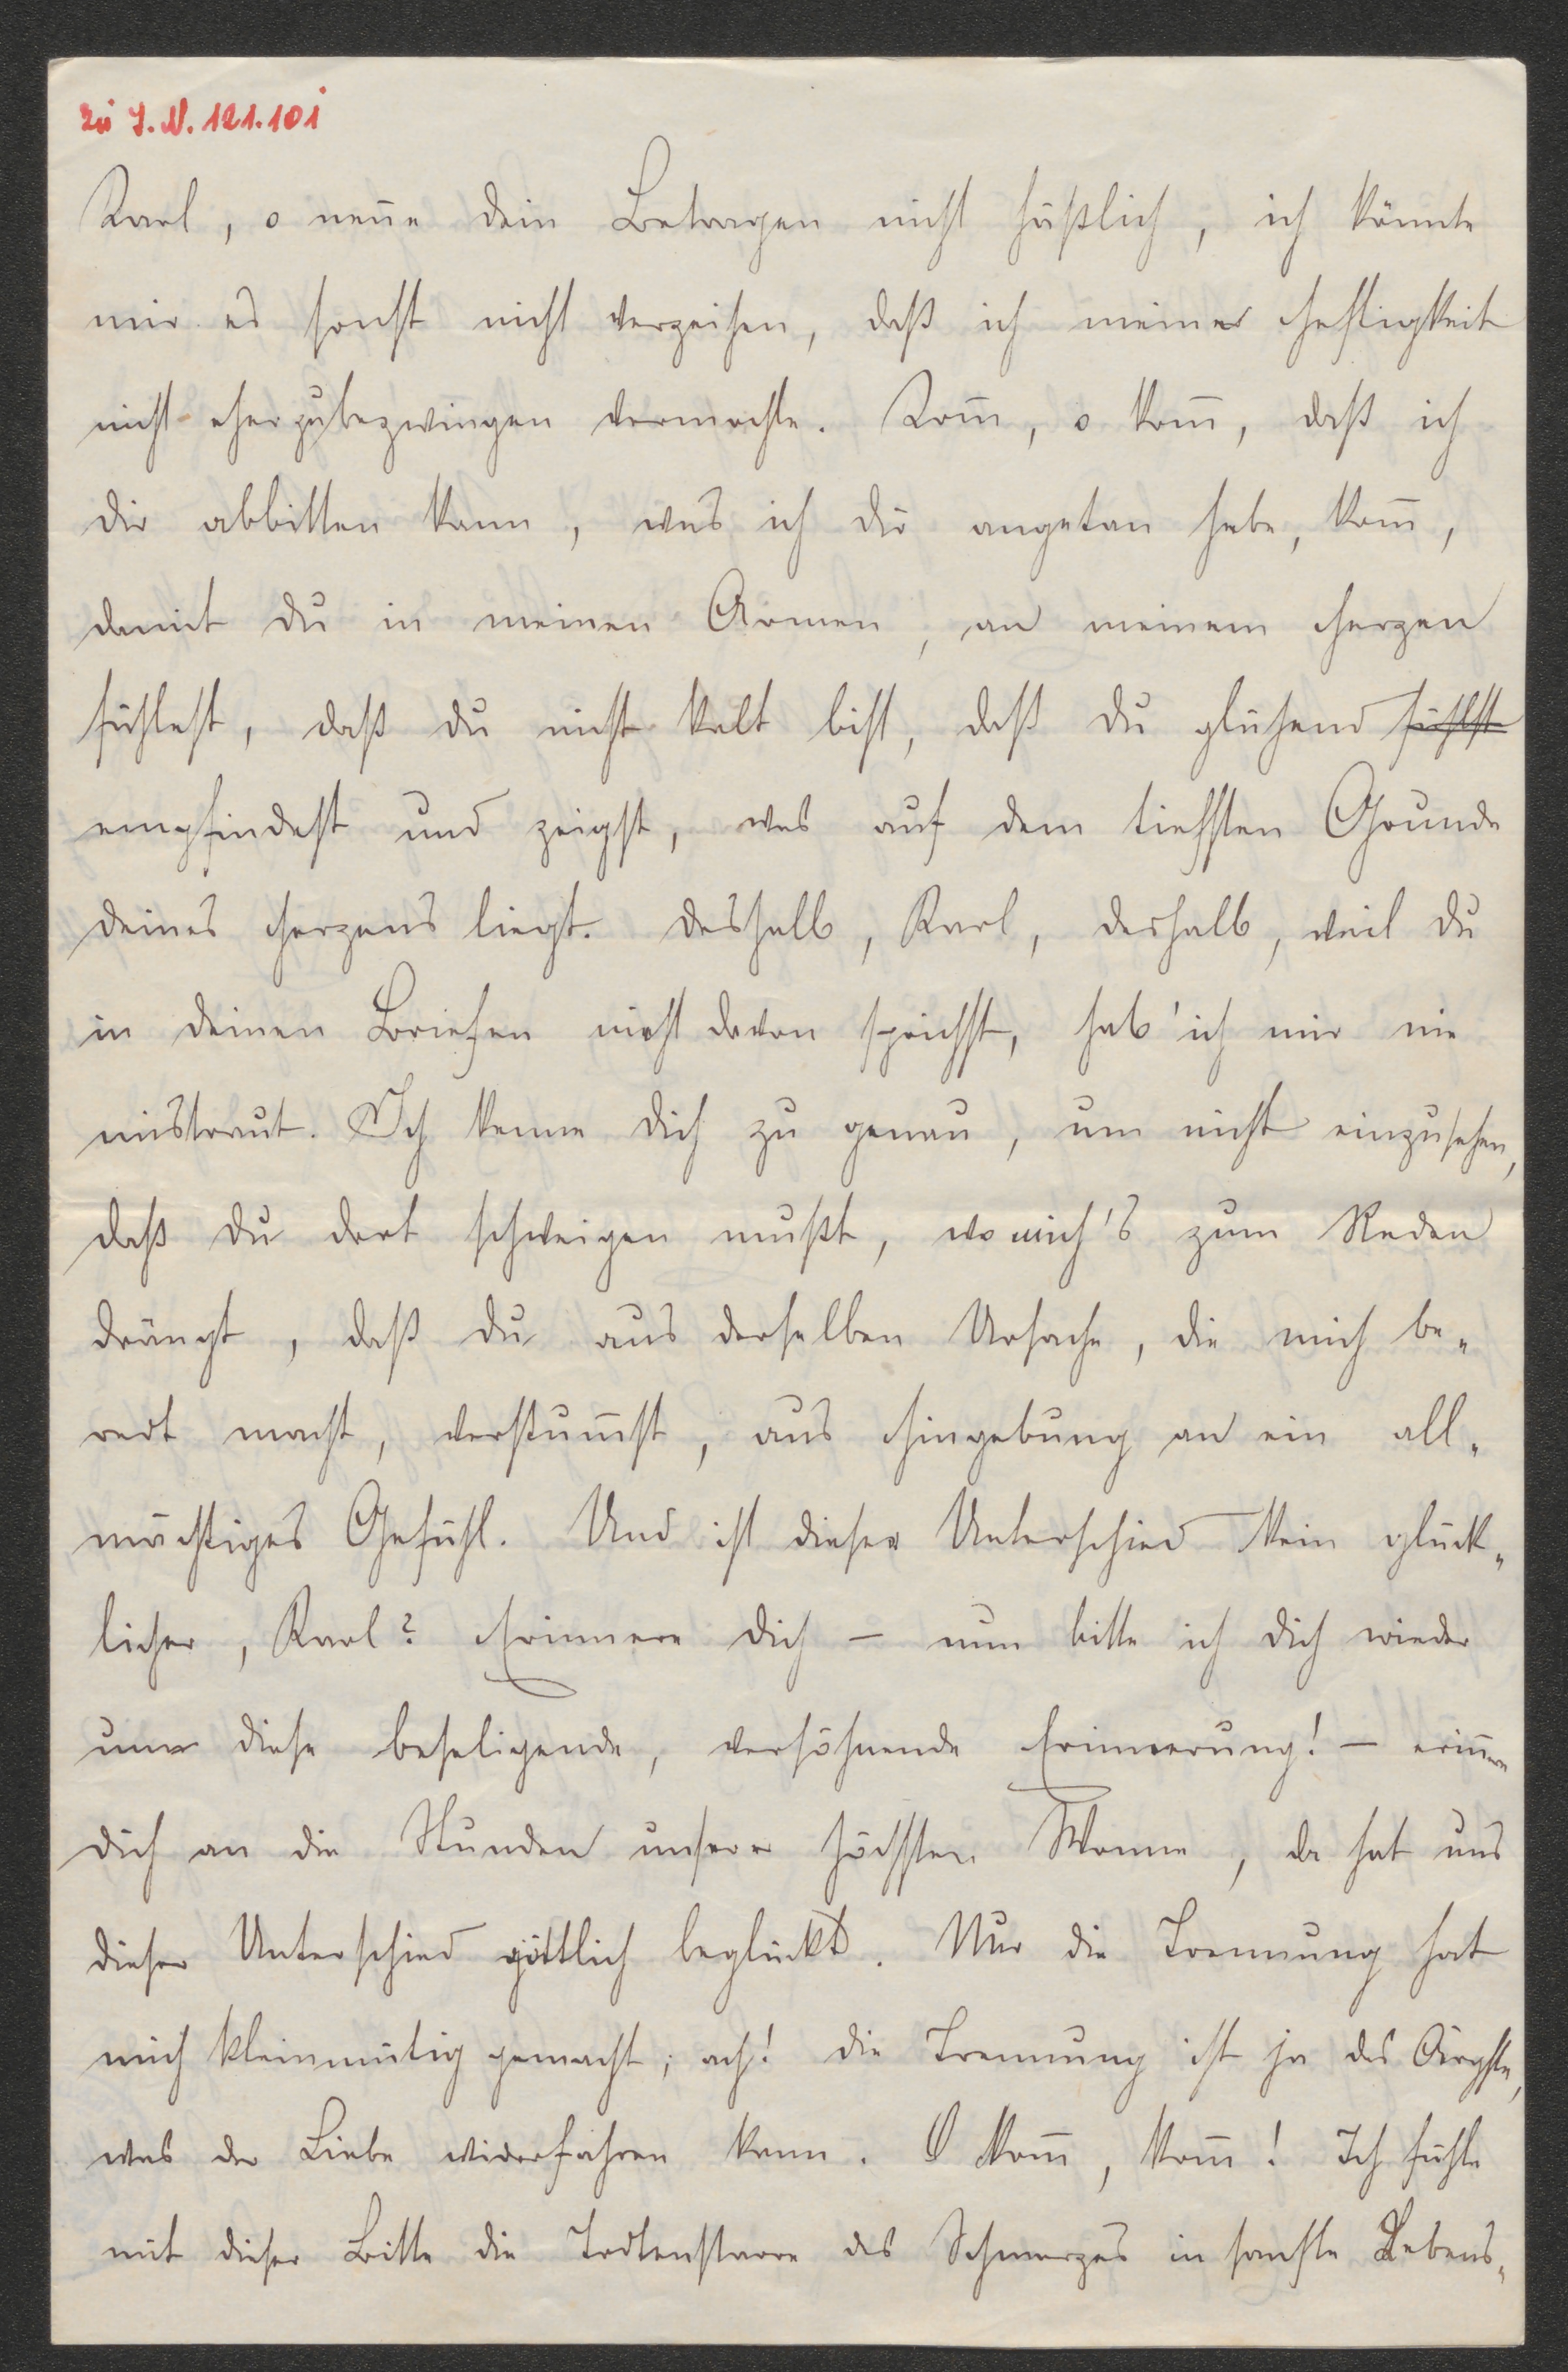 zu J.N. 121.101
Karl, o neñe dein Betragen nicht häßlich, ich könnte
mir es sonst nicht verzeihen, daß ich meiner Heftigkeit
nicht eher zu bezwingen vermochte. Kom̄, o kom̄, daß ich
dir abbitten kann, was ich dir angetan habe, kom̄,
damit du in meinen Armen, an meinem Herzen
fühlest, daß du nicht kalt bist, daß du glühend fühlst
empfindest und zeigst, was auf dem tiefsten Grunde
deines Herzens liegt. Deshalb, Karl, deshalb, weil du
in deinen Briefen nicht davon sprichst, hab' ich mir nie
mistraut. Ich kenne dich zu genau, um nicht einzusehen,
daß du dort schweigen mußt, wo mich's zum Reden
drängt, daß du aus derselben Ursache, die mich be„
redt macht, verstum̄st, aus Hingebung an ein all„
mächtiges Gefühl. Und ist dieser Unterschied kein glück„
licher, Karl? Erinnere dich – nun bitte ich dich wieder
um diese beseligende, versöhnende Erinnerung! – erin̄ere
dich an die Stunden unserer höchsten Wonne, da hat uns
dieser Unterschied göttlich beglückt. Nur die Trennung hat
mich kleinmütig gemacht; ach! die Trennung ist ja das Ärgste,
was der Liebe widerfahren kann. O kom̄, kom̄! Ich fühle
mit dieser Bitte die Todtenstarre des Schmerzes in sanfte Lebens„